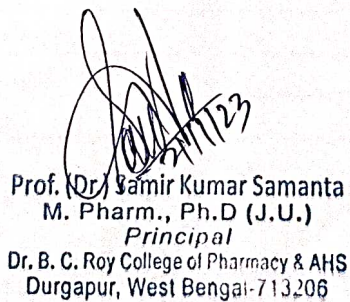 21/1/23
Prof. (Dr.) Samir Kumar Samanta
M. Pharm., Ph.D (J.U.)
Principal
Dr. B. C. Roy College of Pharmacy & AHS
Durgapur, West Bengal-713206